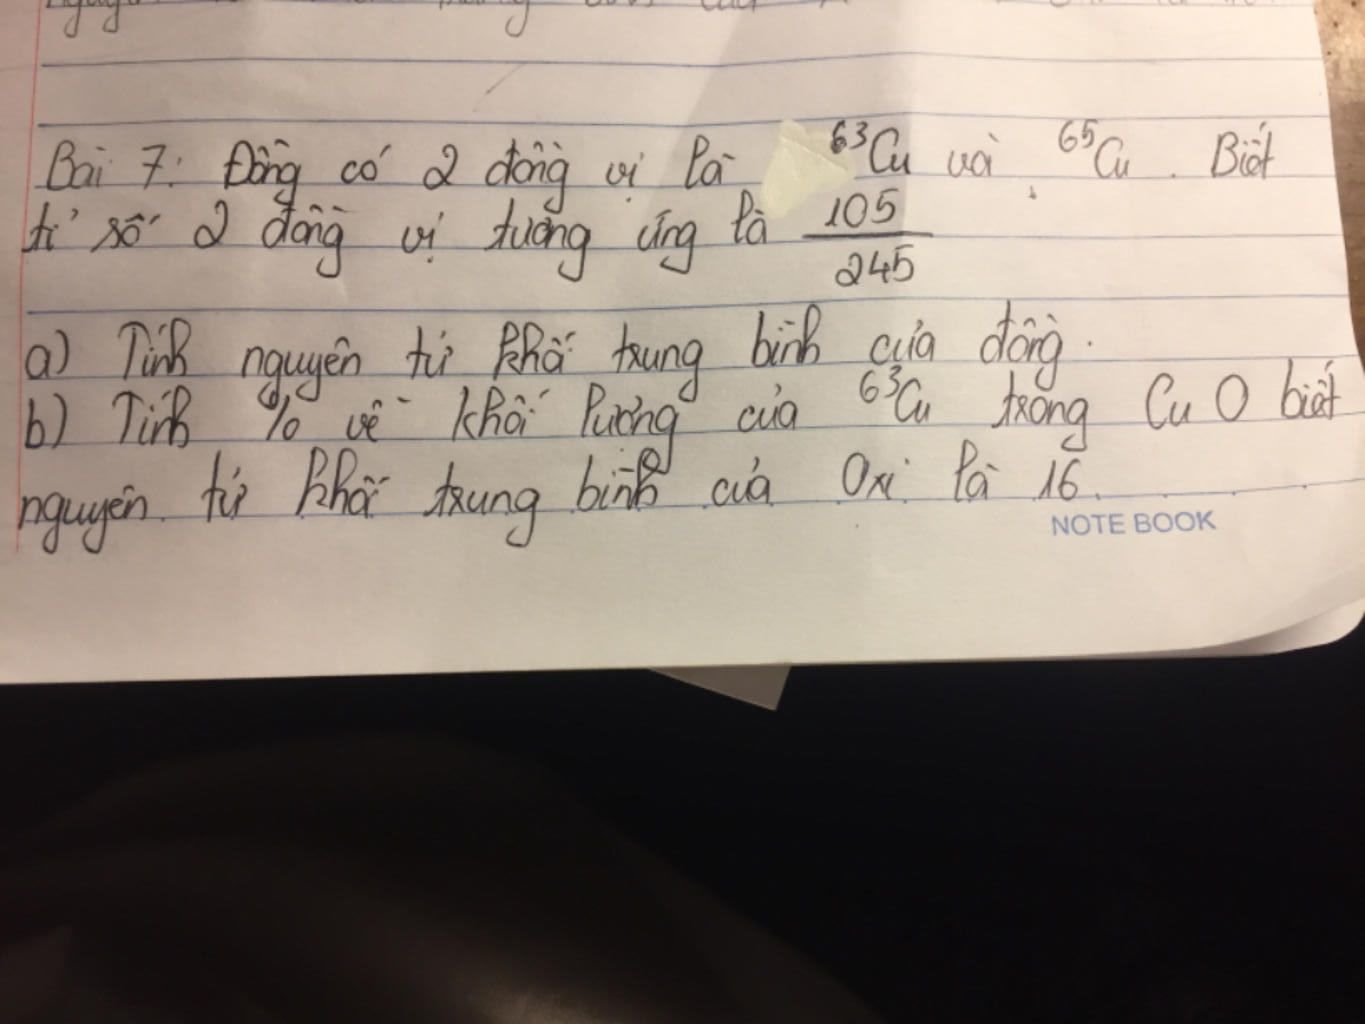 Bài 7: Đồng có 2 đồng vị là ⁶³Cu và ⁶⁵Cu. Biết
tỉ số 2 đồng vị tương ứng là 105/245
a) Tính nguyên tử khối trung bình của đồng.
b) Tính % về khối lượng của ⁶³Cu trong CuO biết
nguyên tử khối trung bình của Oxi là 16.
NOTE BOOK